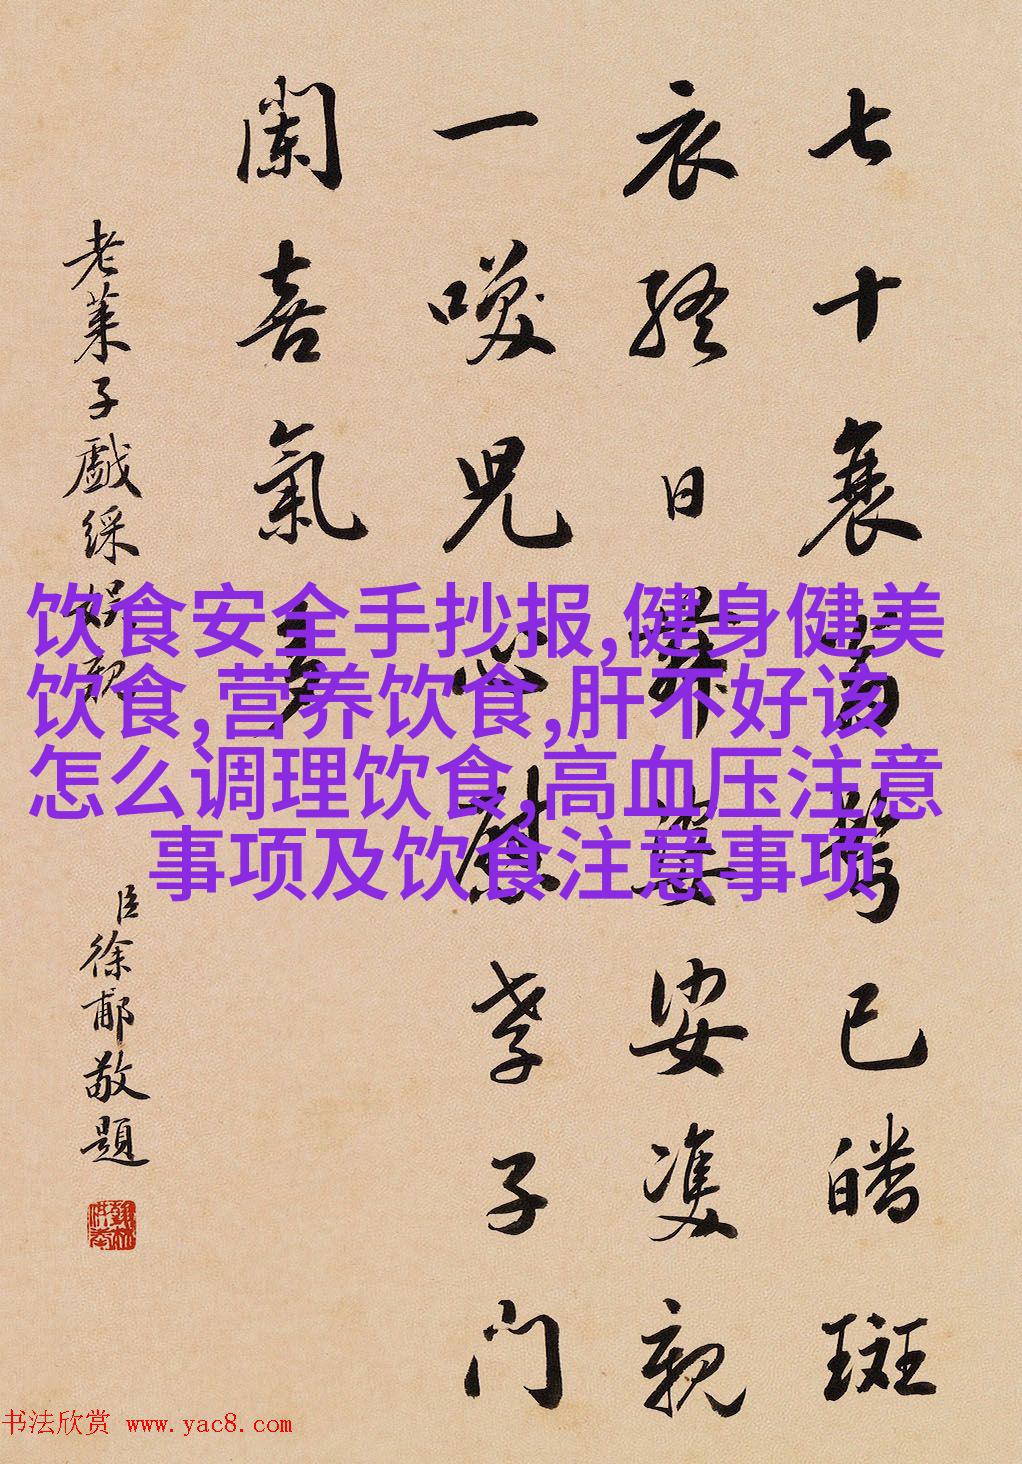 七十衰翁鬢已皤斑
衣終日舞婆娑雙親
一咲兒心慰孝子門
闌喜氣多
老萊子戲綵娛親
臣徐郙敬題
饮食安全手抄报,健身健美
饮食,营养饮食,肝不好该
怎么调理饮食,高血压注意
事项及饮食注意事项
书法欣赏 www.yac8.com